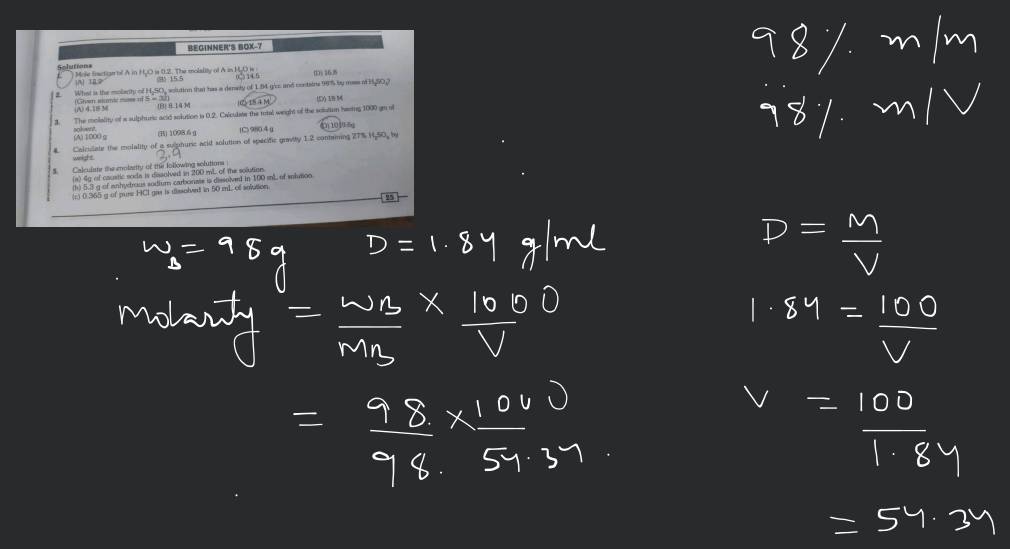 BEGINNER'S BOX-7
Solutions
1. Mole fraction of A in H₂O is 0.2. The molality of A in H₂O is :
(A) 13.9 (B) 15.5 (C) 14.5 (D) 16.8
2. What is the molarity of H₂SO₄ solution that has a density of 1.84 g/cc and contains 98% by mass of H₂SO₄?
(Given atomic mass of S = 32)
(A) 4.18 M (B) 8.14 M (C) 18.4 M (D) 18 M
3. The molality of a sulphuric acid solution is 0.2. Calculate the total weight of the solution having 1000 gm of
solvent.
(A) 1000 g (B) 1098.6 g (C) 980.4 g (D) 1019.6g
4. Calculate the molality of a sulphuric acid solution of specific gravity 1.2 containing 27% H₂SO₄ by
weight.
3.9
5. Calculate the molarity of the following solutions :
(a) 4g of caustic soda is dissolved in 200 mL of the solution.
(b) 5.3 g of anhydrous sodium carbonate is dissolved in 100 mL of solution.
(c) 0.365 g of pure HCl gas is dissolved in 50 mL of solution.
25
98% m/m
98% m/V
W_B = 98g D = 1.84 g/ml
molarity = WB/MB × 1000/V
= 98/98 × 1000/54.34
D = M/V
1.84 = 100/V
V = 100/1.84
= 54.34